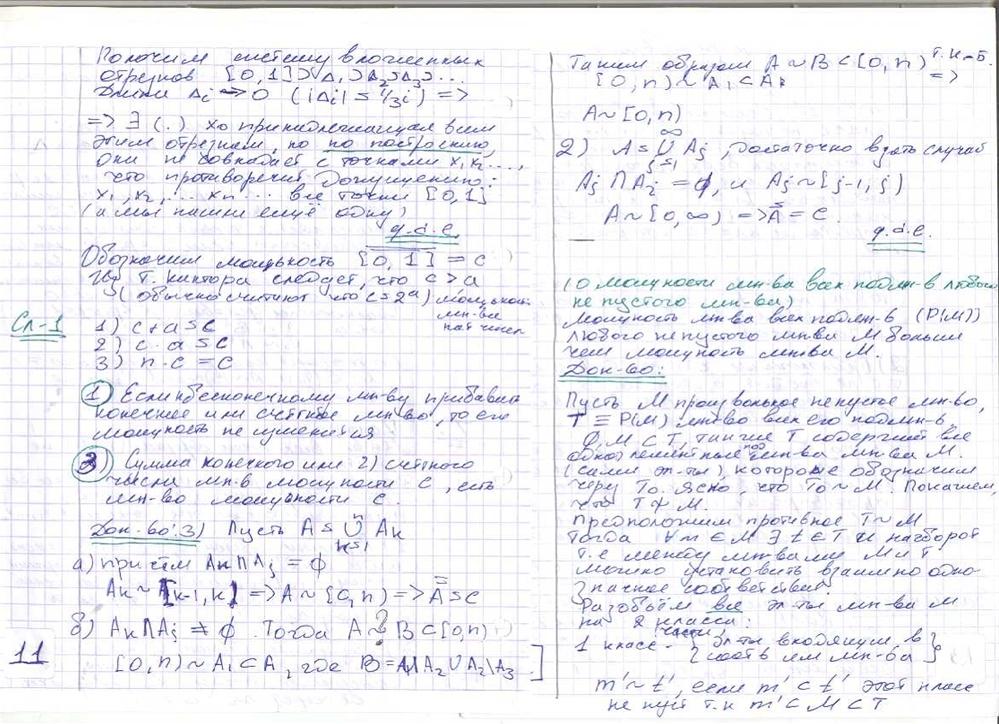 Получим систему вложенных
отрезков [0,1]⊃Δ₁⊃Δ₂⊃Δ₃⊃...
Длины Δi → 0 (|Δi| = 1/3^i) =>
=> ∃ (.) x₀ принадлежащая всем
этим отрезкам, но по построению,
она не совпадает с точками x₁, x₂ ...,
что противоречит допущению:
x₁, x₂, ... xn ... все точки [0,1]
(а мы нашли ещё одну)
q.d.e.
Обозначим мощность [0,1] = c
Из т. Кантора следует, что c > a
(обычно считают что c = 2^a) мощность
мн-ва
нат чисел
Сл-1
1) c + a = c
2) c · a = c
3) n · c = c
1) Если бесконечному мн-ву прибавить
конечное или счётное мн-во, то его
мощность не изменится
3) Сумма конечного или 2) счётного
числа мн-в мощности c, есть
мн-во мощности c.
Док-во: 3) Пусть A = ∪ Ak
n
k=1
а) причём Ak ∩ Aj = ∅
Ak ~ [k-1, k) => A ~ [0, n) => A = c
б) Ak ∩ Aj ≠ ∅. Тогда A ~ B ⊂ [0, n)
11
[0, n) ~ A₁ ⊂ A, где B = A₁ ∪ A₂ ∪ A₂\A₃ ]
Таким образом A ~ B ⊂ [0, n) т. К-Б.
[0, n) ~ A₁ ⊂ A; =>
A ~ [0, n)
2) A = ∪ Aj, достаточно взять случай
∞
j=1
Aj ∩ Ai = ∅, и Aj ~ [j-1, j)
A ~ [0, ∞) => A = c.
q.d.e.
(О мощности мн-ва всех подмн-в любого
не пустого мн-ва)
Мощность мн-ва всех подмн-в (P(M))
любого не пустого мн-ва M больше
чем мощность мн-ва M.
Док-во:
Пусть M произвольное не пустое мн-во,
T ≡ P(M) мн-во всех его подмн-в,
∅, M ⊂ T, также T содержит все
одноэлементные подмн-ва мн-ва M.
(сами эл-ты), которые обозначим
через T₀. Ясно, что T₀ ~ M. Покажем,
что T ≁ M.
Предположим противное T ~ M
Тогда ∀ m ∈ M ∃ t ∈ T и наоборот
т.е между мн-вами M и T
можно установить взаимно одно-
значное соответствие.
Разобьём все эл-ты мн-ва M
на 2 класса:
(части)
1 класс - { эл-ты входящие в
соотв им мн-ва }
m' ~ t', если m' ⊂ t' этот класс
не пуст т.к m' ⊂ M ⊂ T